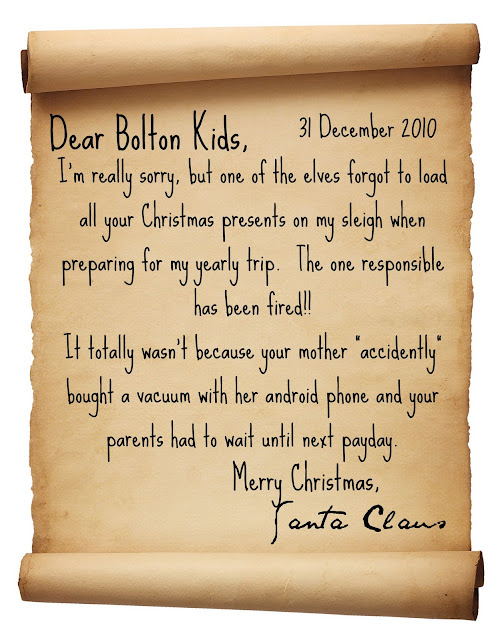 Dear Bolton Kids, 31 December 2010
I'm really sorry, but one of the elves forgot to load
all your Christmas presents on my sleigh when
preparing for my yearly trip. The one responsible
has been fired!!
It totally wasn't because your mother "accidently"
bought a vacuum with her android phone and your
parents had to wait until next payday.
Merry Christmas,
Santa Claus